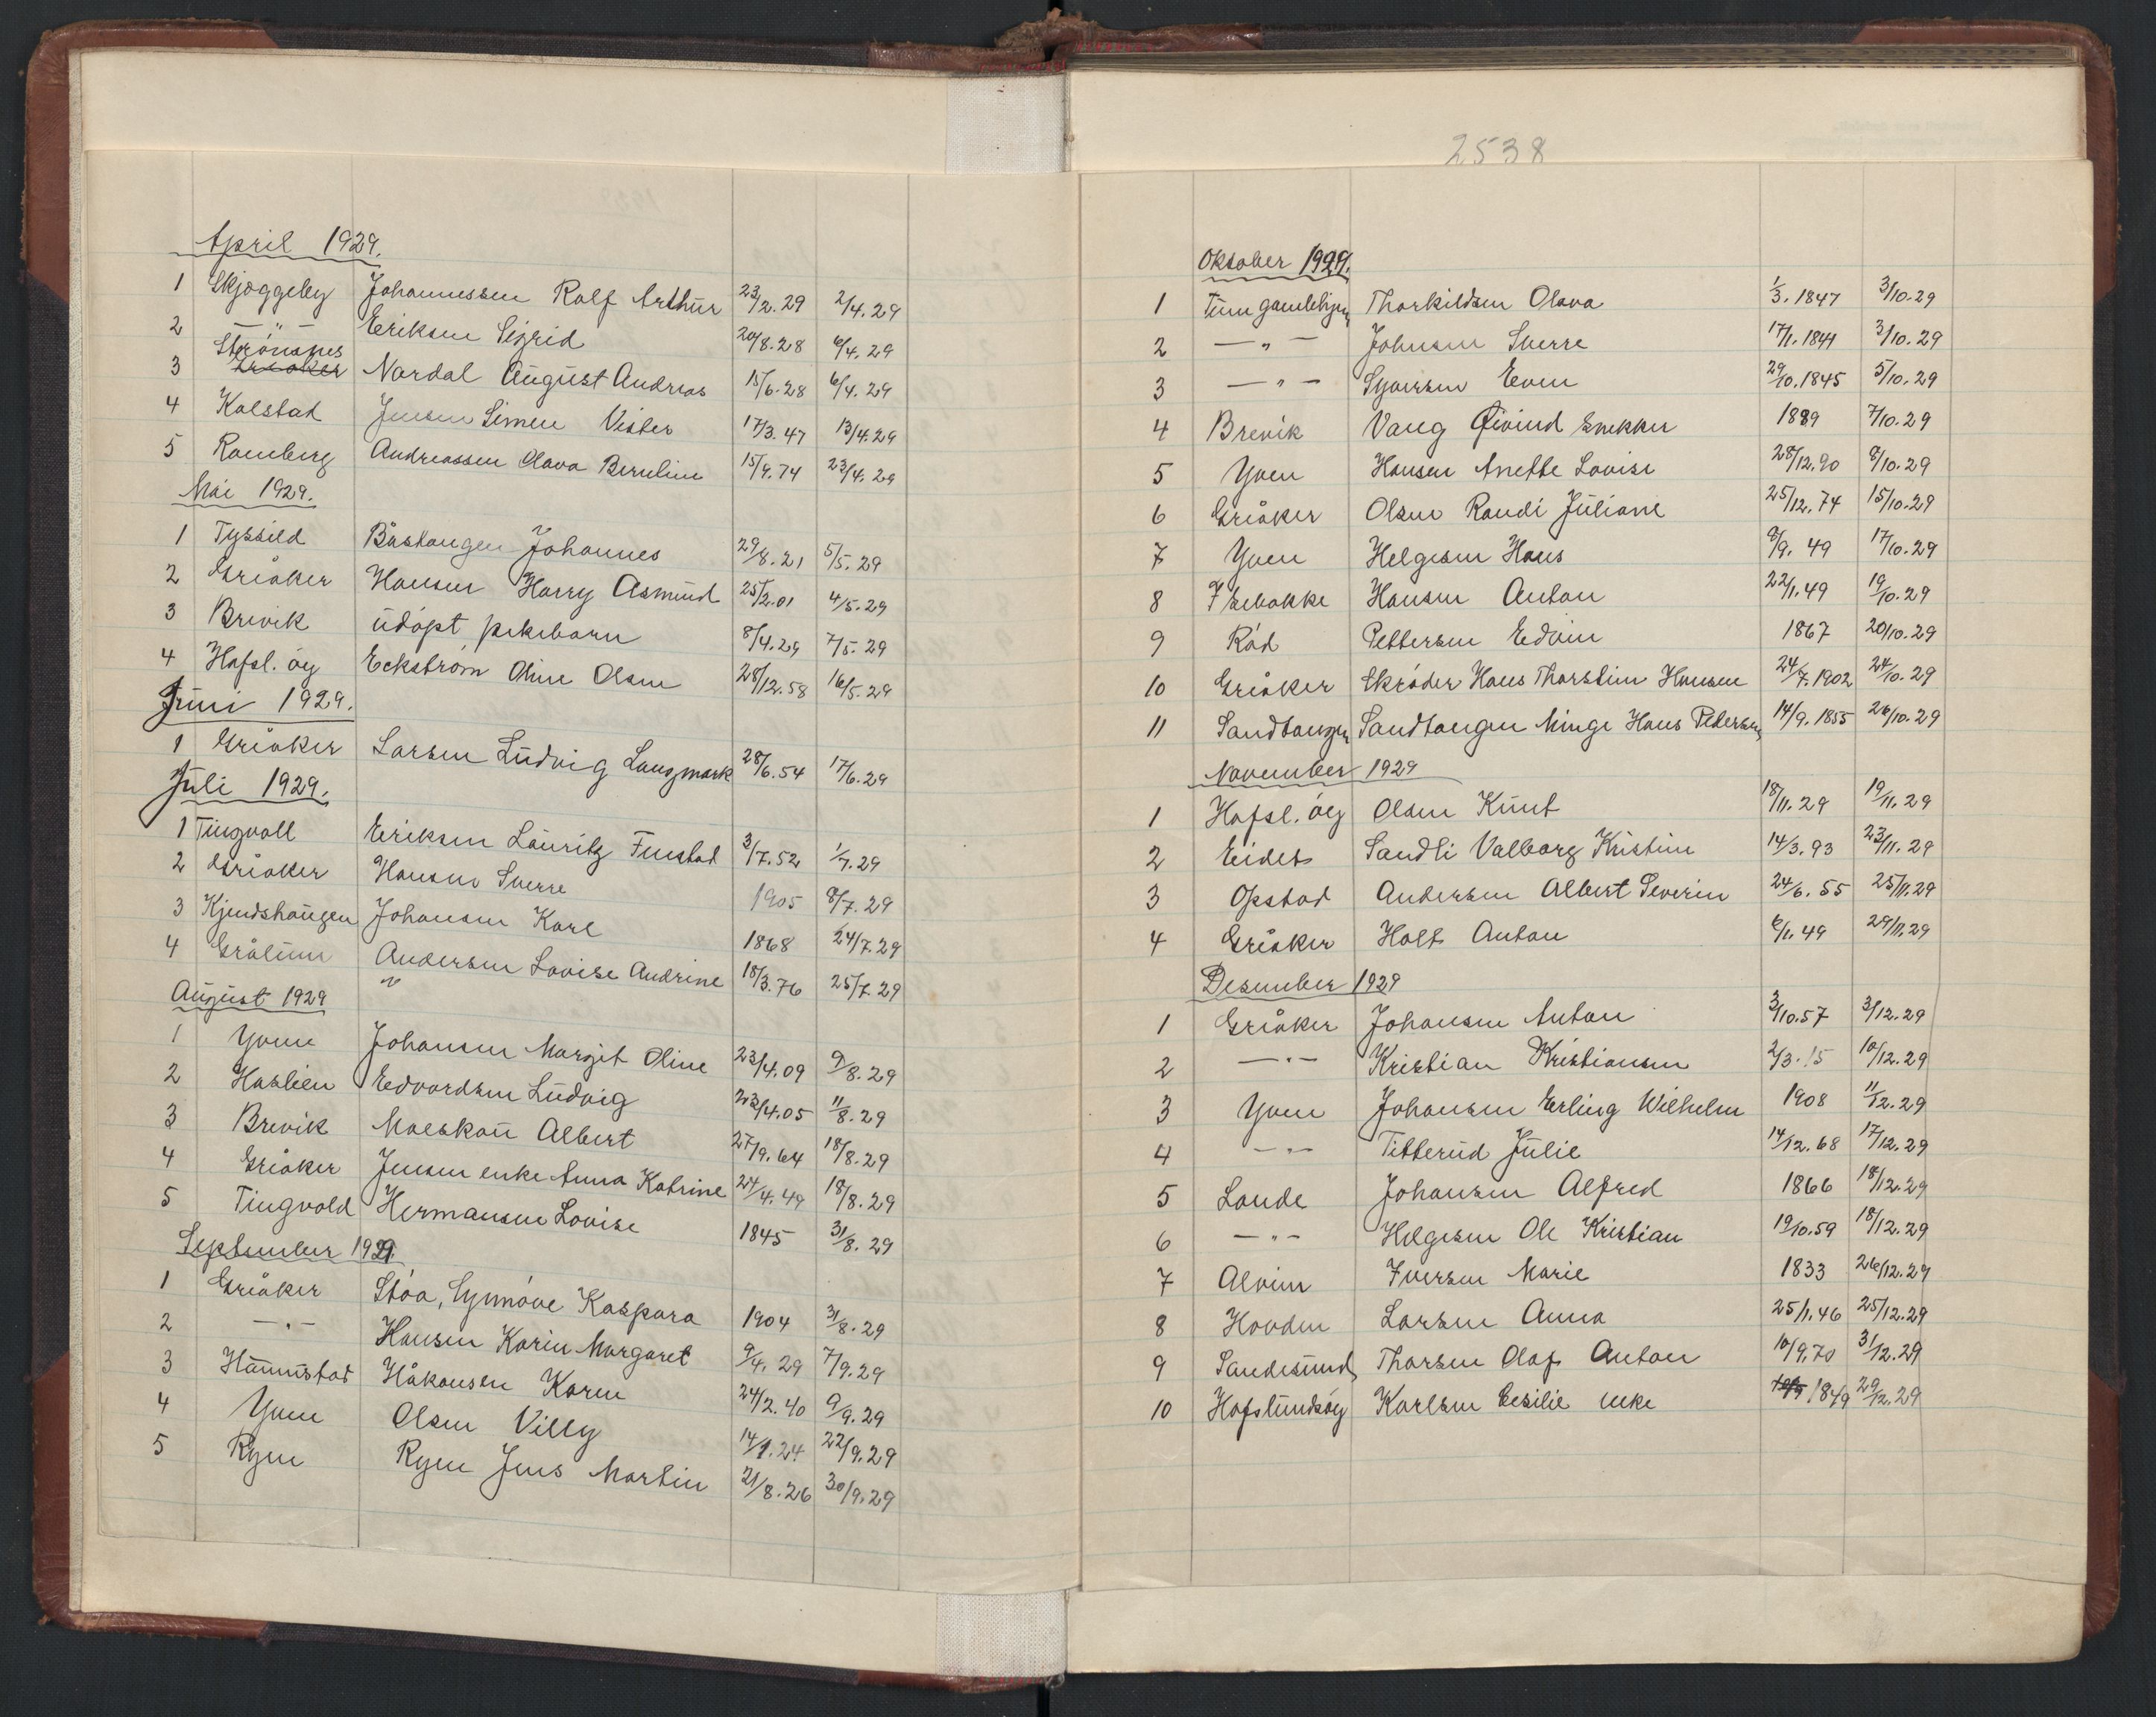 April 1929.
1 Skjøggeby Johannessen Rolf Arthur 23/2.29 2/4.29
2 — " — Eriksen Sigrid 20/8.28 6/4.29
Strömsnes
3 Nordal August Andreas 15/6.28 6/4.29
4 Kolstad Jensen Simen Vister 17/3.47 13/4.29
5 Ramberg Andreassen Olava Bernline 15/4.74 23/4.29
Mai 1929.
1 Tyssild Båstangen Johannes 29/8.21 5/5.29
2 Greåker Hansen Harry Asmund 25/2.01 4/5.29
3 Brevik udøpt pikebarn 8/4.29 7/5.29
4 Hafsl. øy Eckström Oline Olsen 28/12.58 16/5.29
Juni 1929.
1 Greåker Larsen Ludvig Langmark 28/6.54 17/6.29
Juli 1929.
1 Tingvoll Eriksen Lauritz Finstad 3/7.52 1/7.29
2 Greåker Hansen Sverre 1905 8/7.29
3 Kjendshaugen Johansen Karl 1868 24/7.29
4 Grålum Andersen Lovise Andrine 18/3.76 25/7.29
August 1929
1 Yven Johansen Margit Oline 23/4.09 9/8.29
2 Haslien Edvardsen Ludvig 23/4.05 11/8.29
3 Brevik Moeskau Albert 27/9.64 18/8.29
4 Greåker Jensen enke Anna Katrine 24/4.49 18/8.29
5 Tingvold Hermansen Lovise 1845 31/8.29
September 1929.
1 Greåker Stöa, Synnöve Kaspara 1904 31/8.29
2 — " — Hansen Karin Margaret 9/4.29 7/9.29
3 Hannestad Håkonsen Karen 24/2.40 9/9.29
4 Yven Olsen Villy 14/1.24 22/9.29
5 Ryen Ryen Jens Martin 21/8.26 30/9.29
2538
Oktober 1929.
1 Tune gamlehjem Thorkildsen Olava 1/3.1847 3/10.29
2 — " — Johnsen Sverre 17/1.1844 3/10.29
3 — " — Syversen Even 29/10.1845 5/10.29
4 Brevik Vang Øivind snekker 1889 7/10.29
5 Yven Hansen Anette Lovise 28/12.90 8/10.29
6 Greåker Olsen Randi Juliane 25/12.74 15/10.29
7 Yven Helgesen Hans 8/9.49 17/10.29
8 Isebakke Hansen Anton 22/1.49 19/10.29
9 Råd Pettersen Edvin 1867 20/10.29
10 Greåker Skröder Hans Thorstein Hansen 24/7.1902 24/10.29
11 Sandtangen Sandtangen Minge Hans Pedersen 14/9.1855 26/10.29
November 1929
1 Hafsl. øy Olsen Knut 18/11.29 19/11.29
2 Eidet Sandli Valborg Kristine 14/3.93 23/11.29
3 Opstad Andersen Albert Severin 24/6.55 25/11.29
4 Greåker Holt Anton 6/1.49 29/11.29
Desember 1929
1 Greåker Johansen Anton 3/10.57 3/12.29
2 — " — Kristian Kristiansen 2/3.15 10/12.29
3 Yven Johansen Erling Wilhelm 1908 11/12.29
4 — " — Titterud Julie 14/12.68 17/12.29
5 Lande Johansen Alfred 1866 18/12.29
6 — " — Helgesen Ole Kristian 19/10.59 18/12.29
7 Alvim Iversen Marie 1833 26/12.29
8 Hovden Larsen Anna 25/1.46 25/12.29
9 Sandesund Thorsen Olaf Anton 10/9.70 31/12.29
10 Hafslundsøy Karlsen Cesilie enke 1849 29/12.29